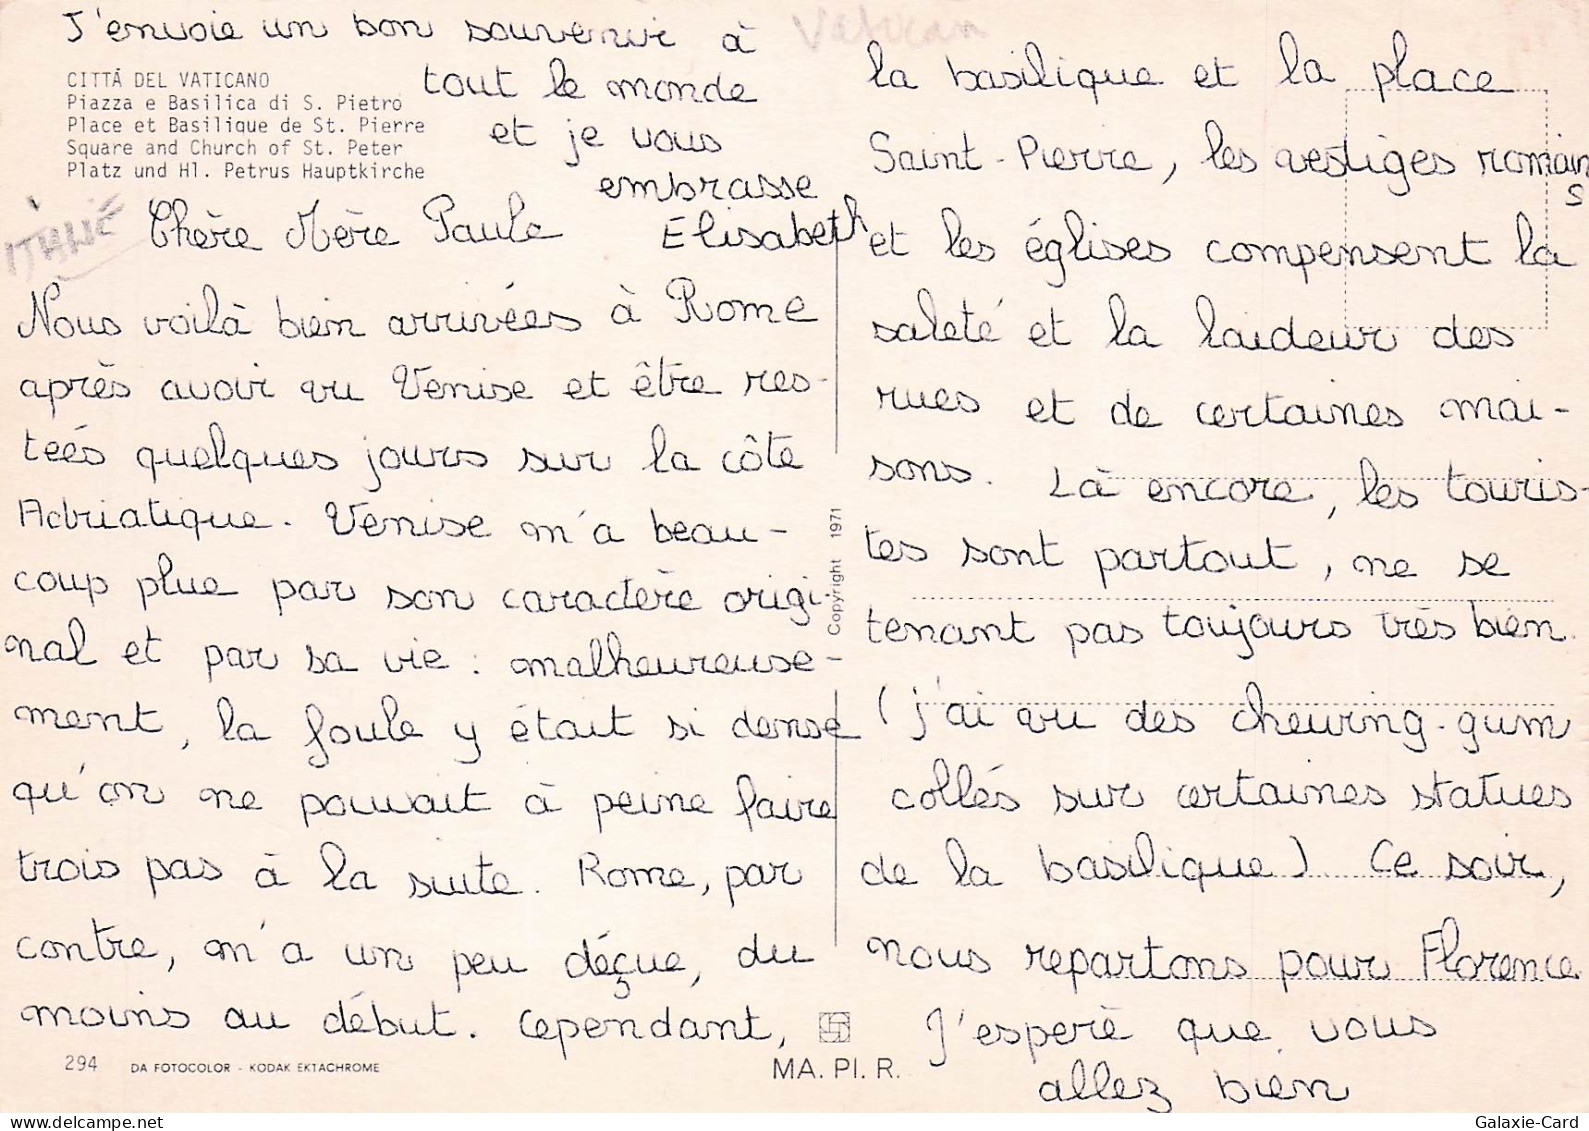 CITTÀ DEL VATICANO
Piazza e Basilica di S. Pietro
Place et Basilique de St. Pierre
Square and Church of St. Peter
Platz und Hl. Petrus Hauptkirche
ITALIE
Vatican
Chère Mère Paule
Nous voilà bien arrivées à Rome
après avoir vu Venise et être res-
tées quelques jours sur la côte
Adriatique. Venise m'a beau-
coup plue par son caractère origi-
nal et par sa vie : malheureuse-
ment, la foule y était si dense
qu'on ne pouvait à peine faire
trois pas à la suite. Rome, par
contre, m'a un peu déçue, du
moins au début. Cependant,
la basilique et la place
Saint-Pierre, les vestiges romains
et les églises compensent la
saleté et la laideur des
rues et de certaines mai-
sons. Là encore, les touris-
tes sont partout, ne se
tenant pas toujours très bien.
(j'ai vu des chewing-gum
collés sur certaines statues
de la basilique). Ce soir,
nous repartons pour Florence
J'espère que vous
allez bien
J'envoie un bon souvenir à
tout le monde
et je vous
embrasse
Elisabeth
Copyright 1971
294 DA FOTOCOLOR - KODAK EKTACHROME
MA. PI. R.
Galaxie-Card